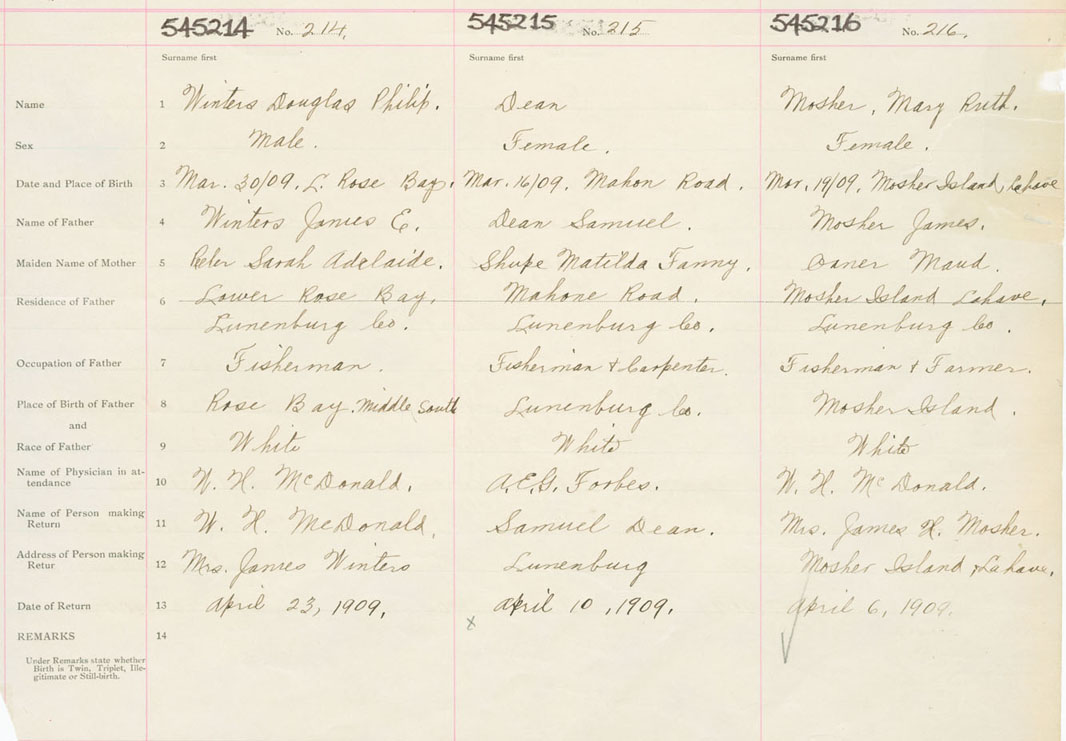 545214 No. 214. 545215 No. 215 545216 No. 216.
Surname first Surname first Surname first
Name 1 Winters Douglas Philip. Dean Mosher, Mary Ruth.
Sex 2 Male. Female. Female.
Date and Place of Birth 3 Mar. 30/09. L. Rose Bay. Mar. 16/09. Mahon Road. Mar. 19/09. Mosher Island, Lahave
Name of Father 4 Winters James E. Dean Samuel. Mosher James.
Maiden Name of Mother 5 Sarah Adelaide. Shupe Matilda Fanny. Maud.
Residence of Father 6 Lower Rose Bay. Mahone Road. Mosher Island Lahave.
Lunenburg Co. Lunenburg Co. Lunenburg Co.
Occupation of Father 7 Fisherman. Fisherman + Carpenter. Fisherman + Farmer.
Place of Birth of Father 8 Rose Bay. Middle South Lunenburg Co. Mosher Island.
and
Race of Father 9 White White White
Name of Physician in at-
tendance 10 W. H. McDonald. A.E.G. Forbes. W. H. McDonald.
Name of Person making
Return 11 W. H. McDonald. Samuel Dean. Mrs. James H. Mosher.
Address of Person making
Retur 12 Mrs. James Winters Lunenburg Mosher Island, Lahave.
Date of Return 13 April 23, 1909. April 10, 1909. April 6, 1909.
REMARKS 14
x
Under Remarks state whether
Birth is Twin, Triplet, Ille-
gitimate or Still-birth.